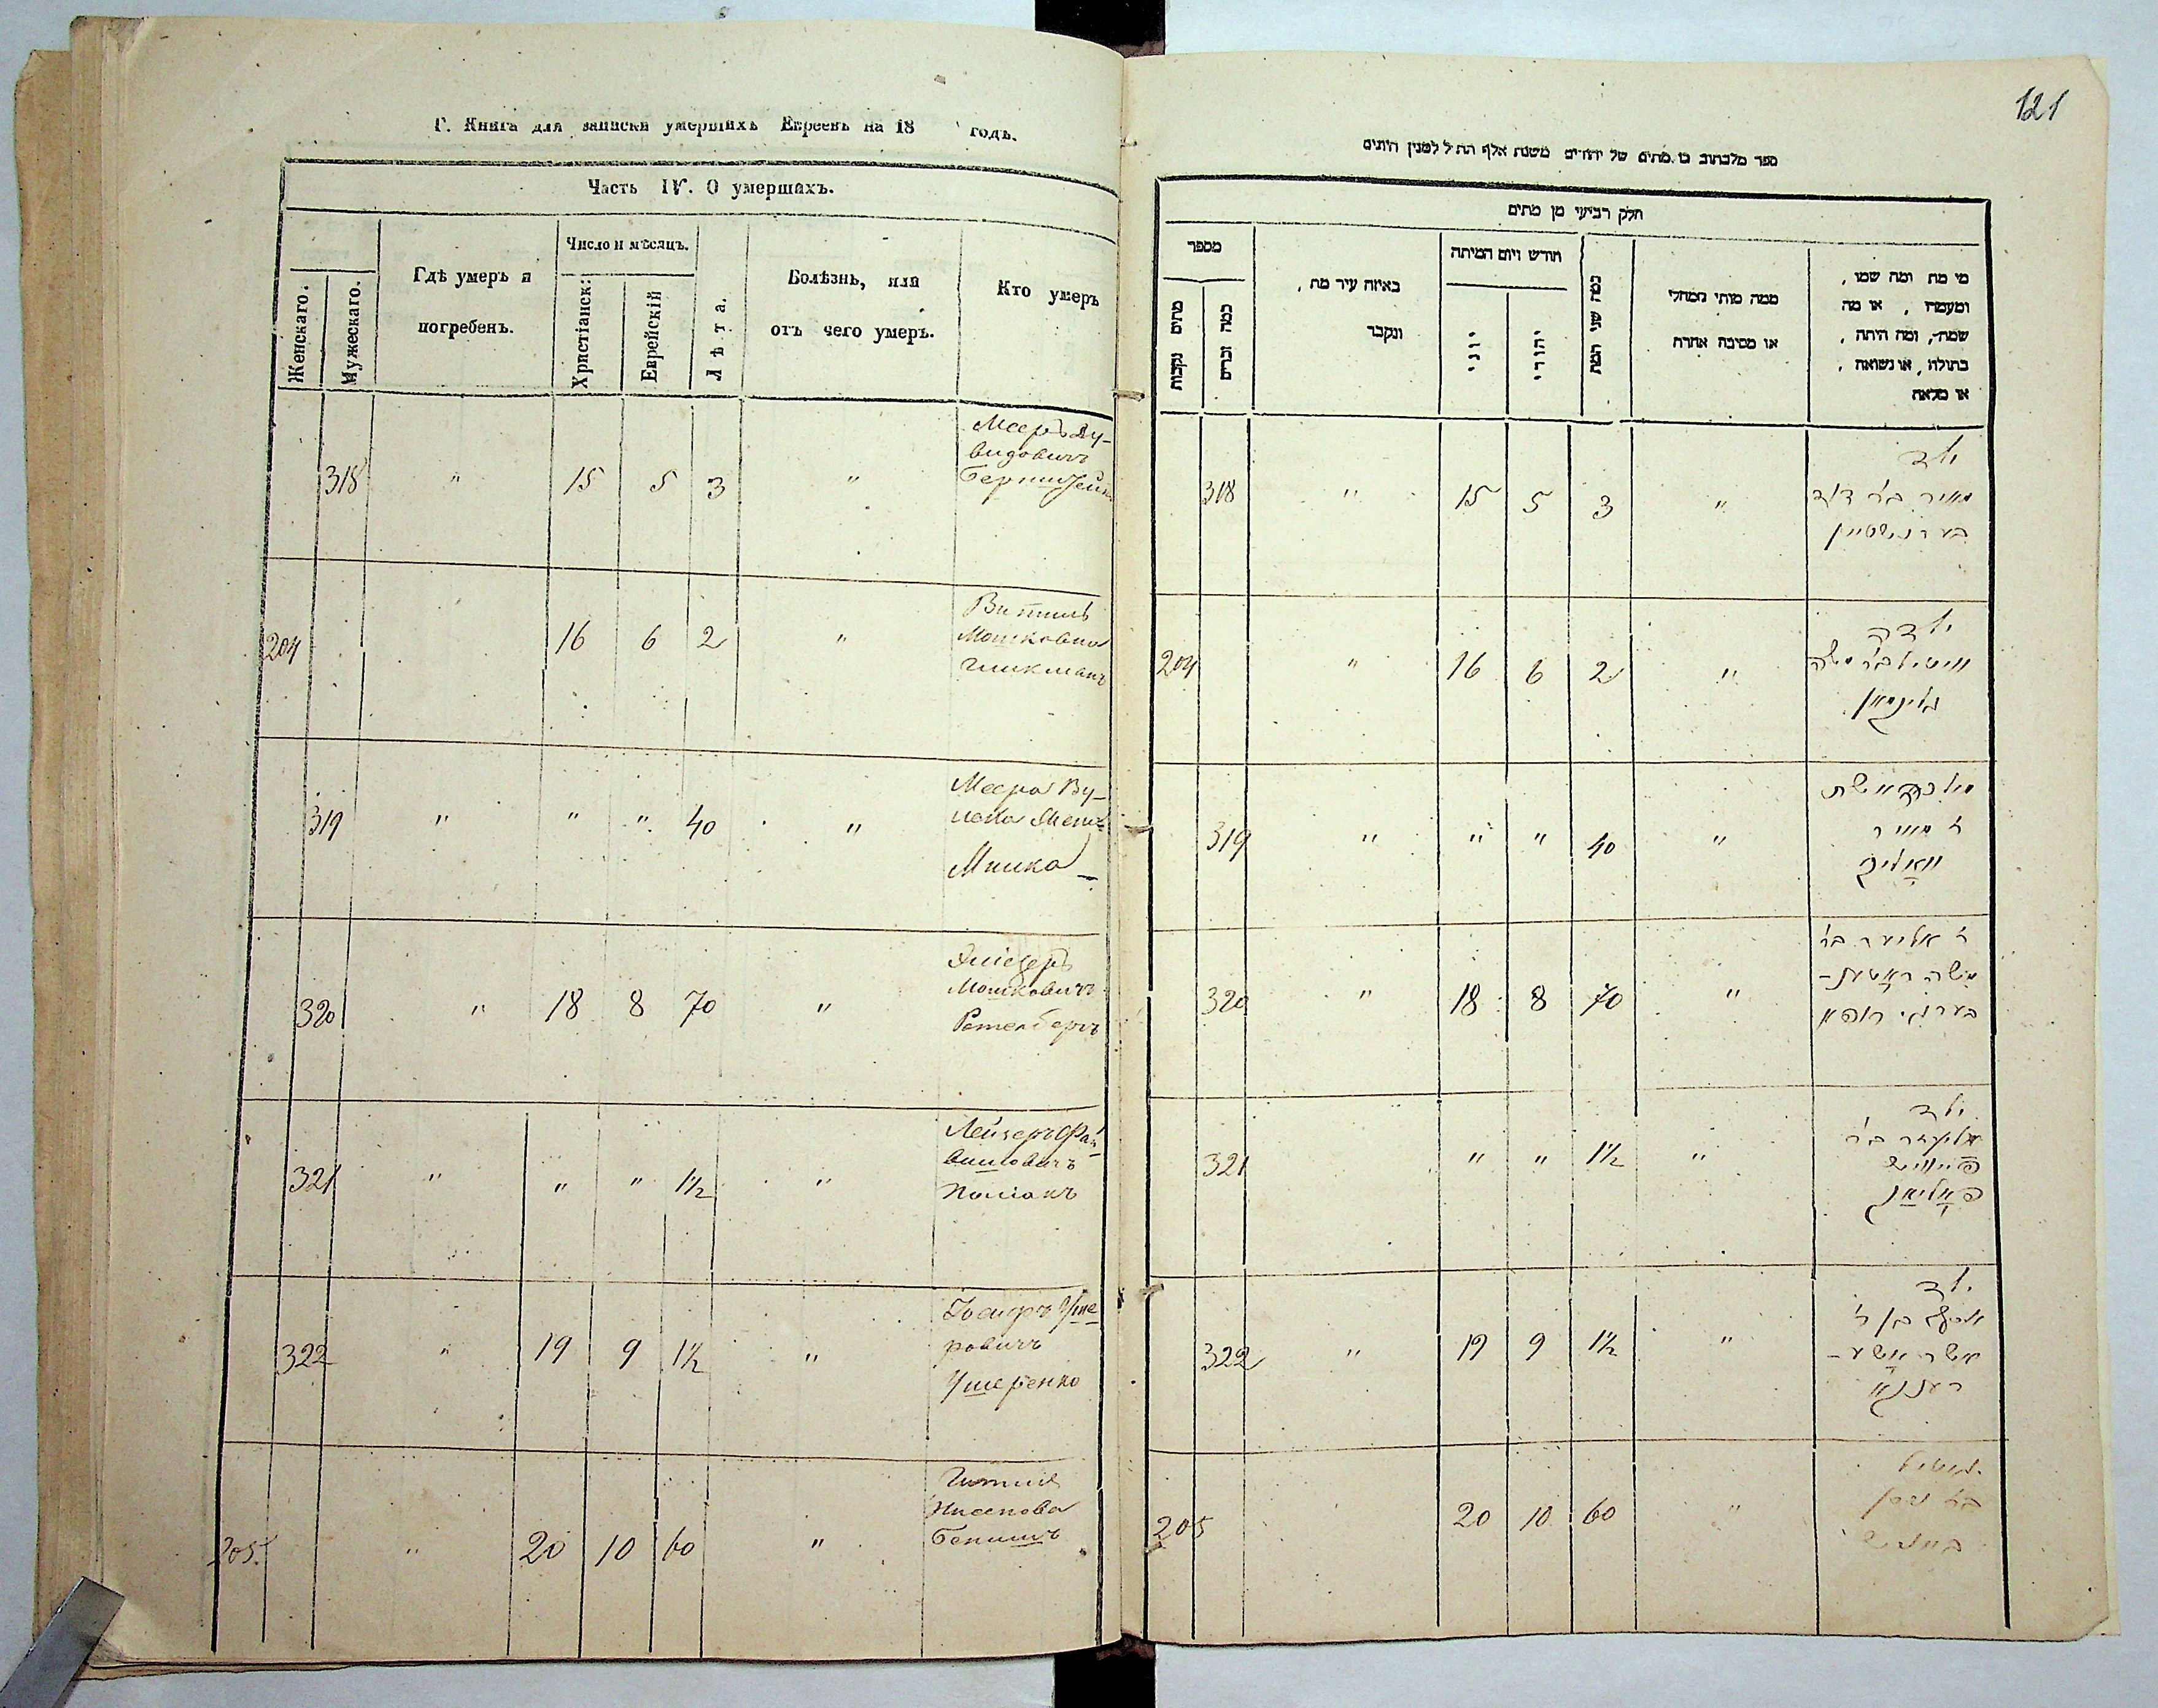 Г. Книга для записки умершихъ Евреевъ на 18 годъ.
Часть IV. О умершихъ.
Женскаго.
Мужескаго.
Гдѣ умеръ и
погребенъ.
Число и мѣсяцъ.
Христіанск:
Еврейскій
Лѣта.
Болѣзнь, или
отъ чего умеръ.
Кто умеръ
318 " 15 5 3 "
Мееръ Ду-
видовичъ
Бернштейнъ
204 16 6 2 "
Витиль
Мошковна
Гликманъ
319 " " " 40 "
Меера Ву-
Жена
320 " 18 8 70 "
Мошковичъ
Ротенбергъ
321 " " " 1½ "
Лейзеръ Фай
вишовичъ
Поліакъ
322 " 19 9 1½ "
Уше
ровичъ
Ушеренко
205 " 20 10 60 "
Гитля
Нисенова
121
ספר מלכתוב בו מתים של יהודים משנת אלף התיל למנין היונים
חלק רביעי מן מתים
מספר
מתים נקבות
כמה זכרים
באיזה עיר מת,
ונקבר
חודש ויום המיתה
יוני
יהודי
כמה שני המת
ממה מותי ממחלי
או מסיבה אחרת
מי מת ומה שמו,
ומעמדו, או מה
שמה, ומה היתה,
בתולה, או נשואה,
או מלאה
318 " 15 5 3 "
ילד
מאיר בר דוד
בערנשטיין
204 " 16 6 2 "
ילדה
וויטיל בר משה
גליקמאן
319 " " " 40 "
אשת
ר מאיר
320 " 18 8 70 "
ר אליעזר בר
משה ראטען-
בערג רופא
321 " " 1½ "
ילד
אליעזר בר
פייוויש
פאליאק
322 " 19 9 1½ "
ילד
בן ר
אשר אשע-
רענקא
205 20 10 60 "
גיטיל
בר ניסן